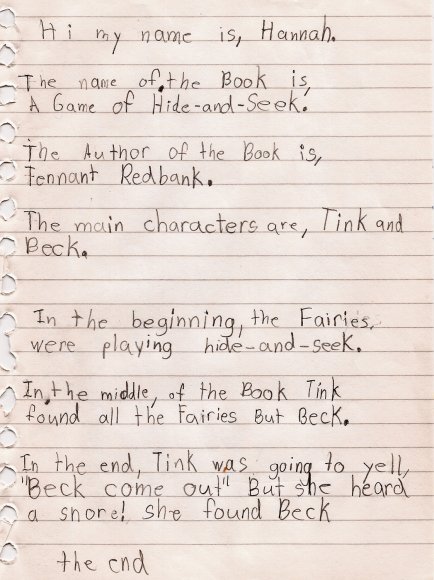 Hi my name is, Hannah.
The name of the Book is,
A Game of Hide-and-Seek.
The Author of the Book is,
Tennant Redbank.
The main characters are, Tink and
Beck.
In the beginning, the Fairies,
were playing hide-and-seek.
In, the middle, of the Book Tink
found all the Fairies But Beck.
In the end, Tink was going to yell,
"Beck come out" But she heard
a snore! she found Beck
the end